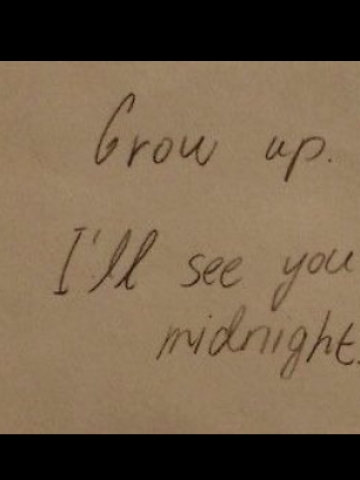 Grow up.
I'll see you
midnight.